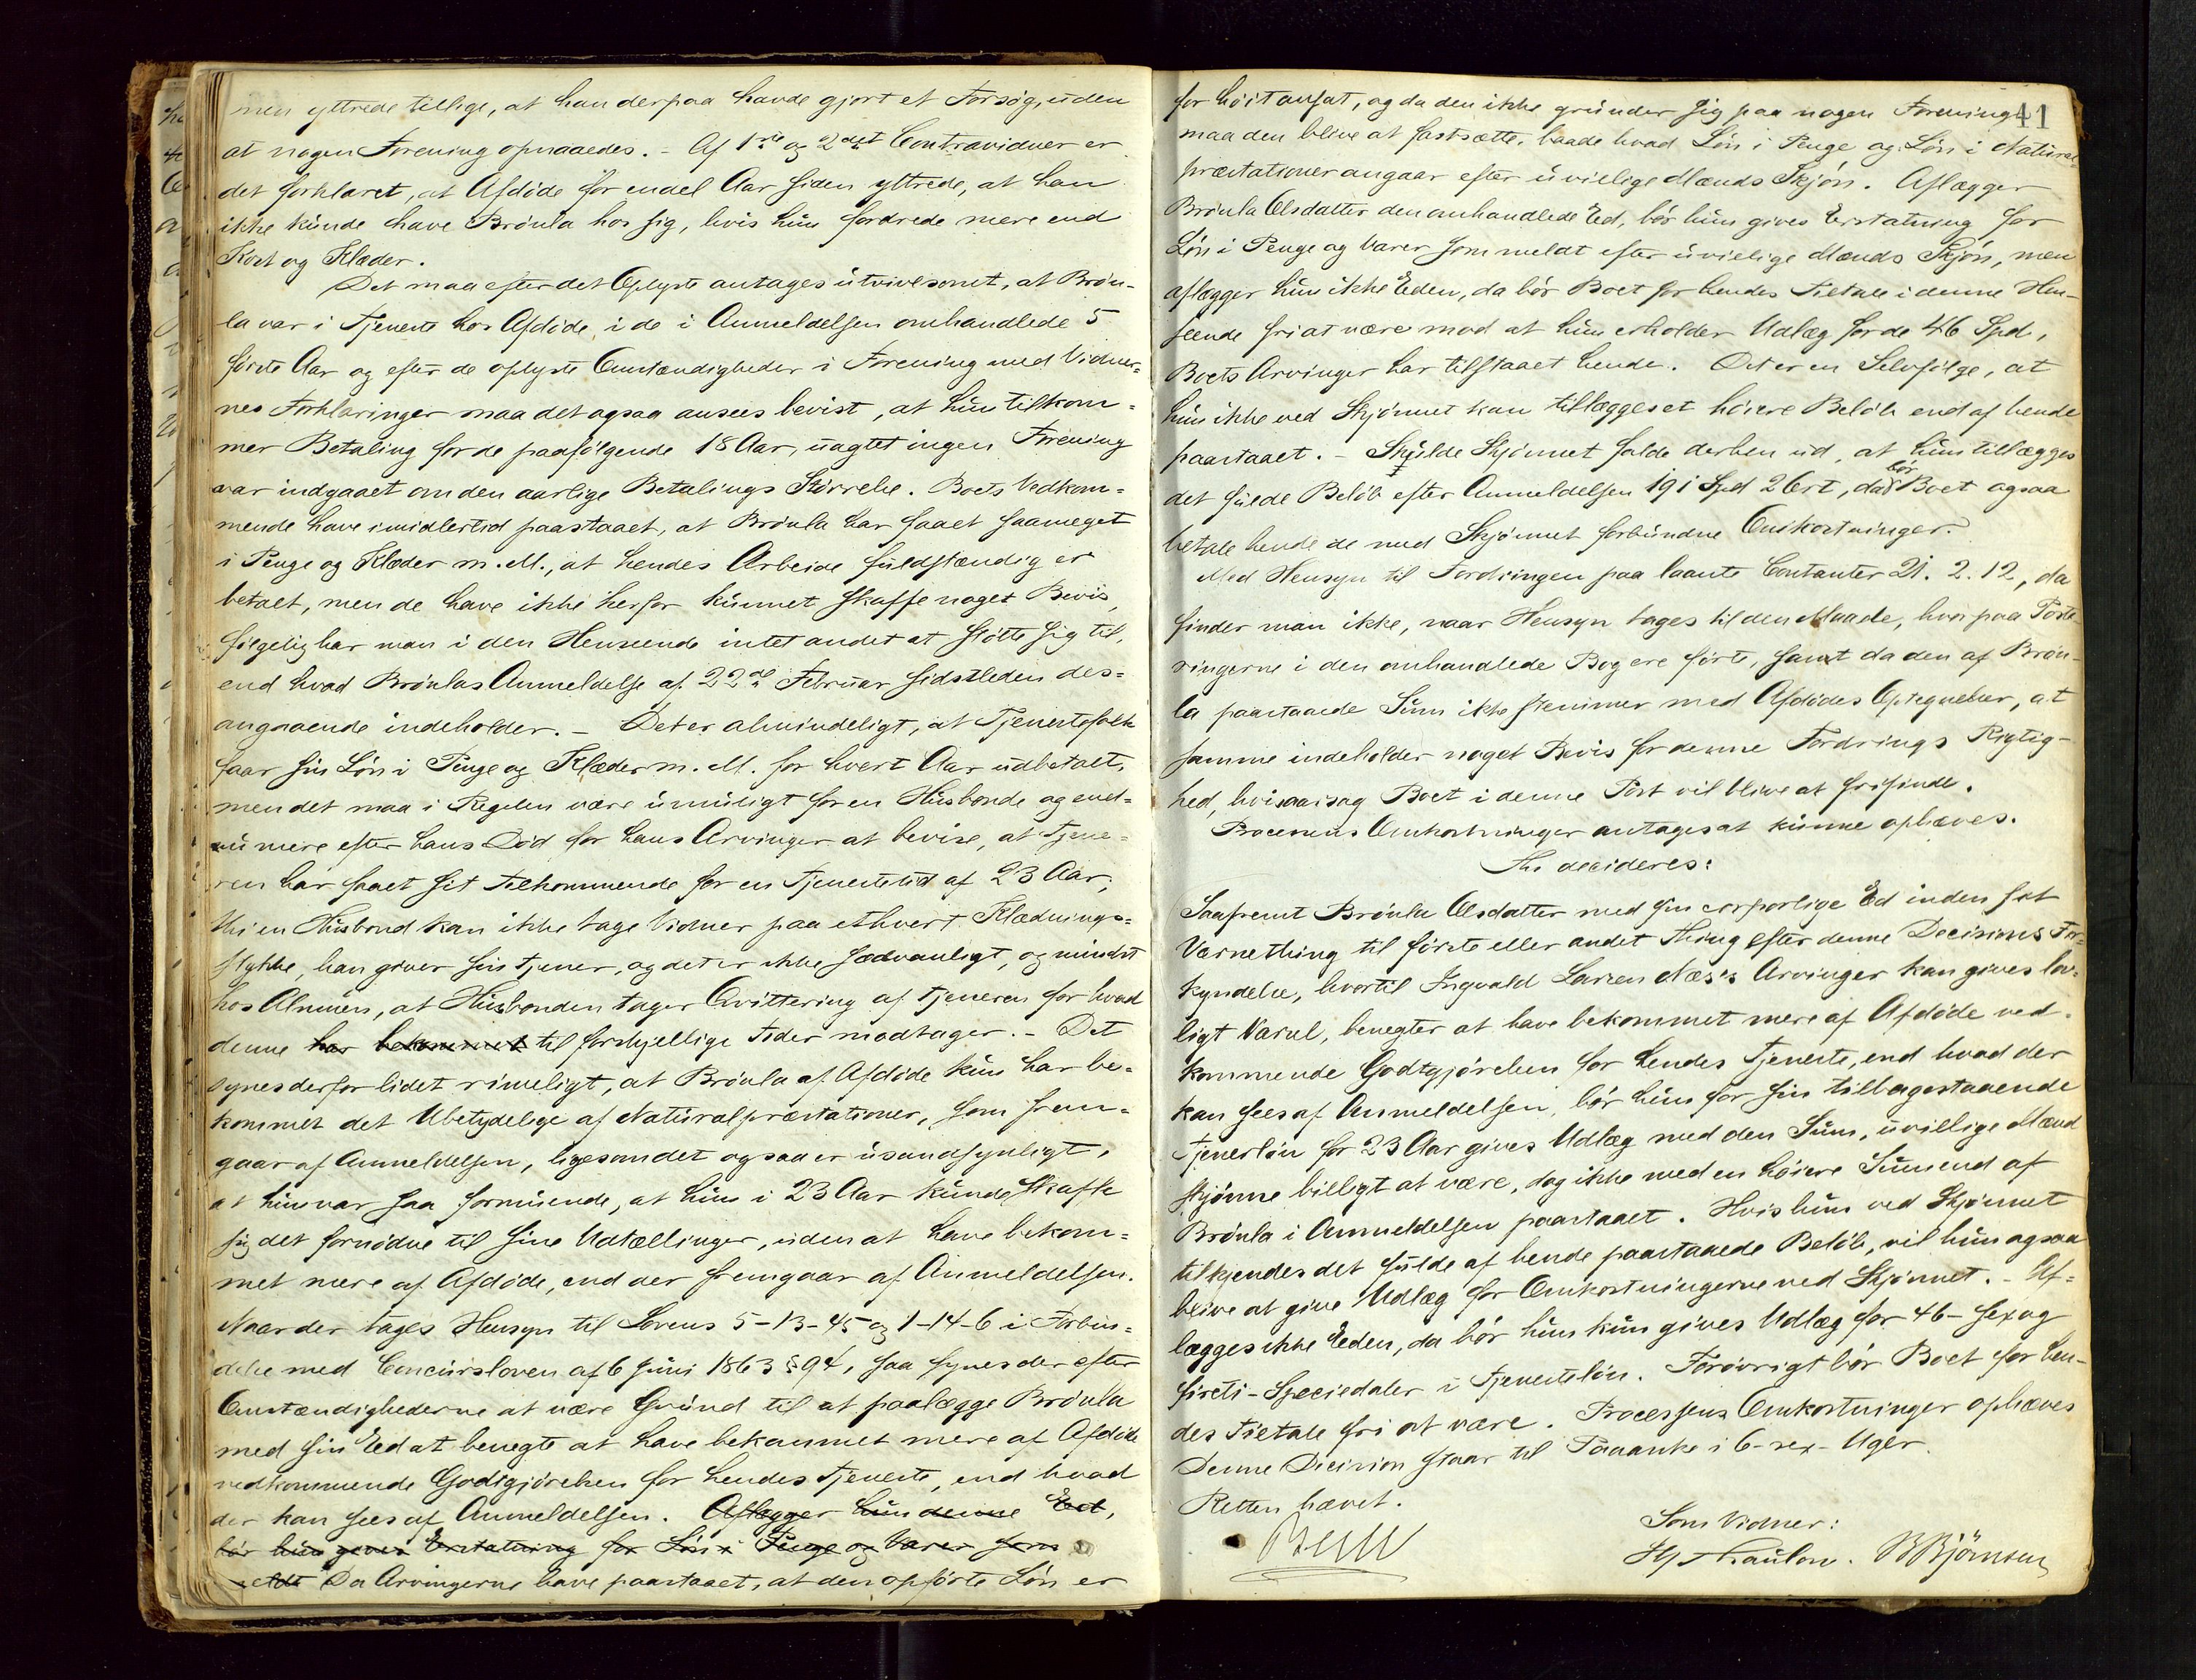 men yttrede tillige, at han derpaa havde gjort et Forsøg, uden
at nogen Forening opnaaedes. – Af 1ste og 2det Contravidner er
det forklaret, at Afdøde for endel Aar siden yttrede, at han
ikke kunde have Brønla hos sig, hvis hun fordrede mere end
Kost og Klæder.
Det maa efter det Oplyste antages utvivlsomt, at Brøn-
la var i Tjeneste hos Afdøde i de i Anmeldelsen omhandlede 5
første Aar og efter de oplyste Omstændigheder i Forening med Vidner-
nes Forklaringer maa det ogsaa ansees bevist, at hun tilkom-
mer Betaling for de paafølgende 18 Aar, uagtet ingen Forening
var indgaaet om den aarlige Betalings Størrelse. Boets Vedkom-
mende have imidlertid paastaaet, at Brønla har faaet saameget
i Penge og Klæder m. M., at hendes Arbeide fuldstændig er
betalt, men de have ikke herfor kunnet skaffe noget Bevis,
følgelig har man i den Henseende intet andet at støtte sig til,
end hvad Brønlas Anmeldelse af 22de Februar sidstleden des-
angaaende indeholder. – Det er almindeligt, at Tjenestefolk
faar sin Løn i Penge og Klæder m. M. for hvert Aar udbetalt,
men det maa i Regelen være umuligt for en Husbonde og end-
nu mere efter hans Død for hans Arvinger at bevise, at Tjene-
ren har faaet sit Tilkommende for en Tjenestetid af 23 Aar;
thi en Husbond kan ikke tage Vidner paa ethvert Klædnings-
stykke, han giver sin Tjener, og det er ikke sædvanligt, og mindst
hos Almuen, at Husbonden tager Qvittering af Tjeneren for hvad
denne har bekommet til forskjellige Tider modtager. – Det
synes derfor lidet rimeligt, at Brønla af Afdøde kun har be-
kommet det Ubetydelige af Naturalpræstationer, som frem-
gaar af Anmeldelsen, ligesom det ogsaa er usandsynligt,
at hun var saa formuende, at hun i 23 Aar kunde skaffe
sig det fornødne til sine Udtællinger, uden at have bekom-
met mere af Afdøde, end der fremgaar af Anmeldelsen.
Naar der tages Hensyn til Lovens 5-13-45 og 1-14-6 i Forbin-
delse med Concursloven af 6 Juni 1863 § 94, saa synes der efter
Omstændighederne at være Grund til at paalægge Brønla
med sin Eed at benegte at have bekommet mere af Afdøde
vedkommende Godtgjørelsen for hendes Tjeneste, end hvad
der kan sees af Anmeldelsen. Aflægger hun denne Eed,
bør hun gives Erstatning for Løn i Penge og Varer som
meldt Da Arvingerne have paastaaet, at den opførte Løn er
41
for høit ansat, og da den ikke grunder sig paa nogen Forening
maa den blive at fastsætte, baade hvad Løn i Penge og Løn i Natural
præstationer angaar efter uvillige Mænds Skjøn. Aflægger
Brønla Olsdatter den omhandlede Eed, bør hun gives Erstatning for
Løn i Penge og Varer som meldt efter uvillige Mænds Skjøn, men
aflægger hun ikke Eden, da bør Boet for hendes Tiltale i denne Hen-
seende fri at være mod at hun erholder Udlæg for de 46 Spd,
Boets Arvinger har tilstaaet hende. Det er en Selvfølge, at
hun ikke ved Skjønnet kan tillægges et høiere Beløb end af hende
paastaaet. – Skulde Skjønnet falde derhen ud, at hun tillægges
det fulde Beløb efter Anmeldelsen 191 Spd 2 Ort, da bør Boet ogsaa
betale hende de med Skjønnet forbundne Omkostninger.
Med Hensyn til Fordringen paa laante Contanter 21. 2. 12, da
finder man ikke, naar Hensyn tages til den Maade, hvorpaa Poste-
ringerne i den omhandlede Bog ere førte, samt da den af Brøn-
la paastaaede Sum ikke stemmer med Afdødes Optegnelser, at
samme indeholder noget Bevis for denne Fordrings Rigtig-
hed, hvisaarsag Boet i denne Post vil blive at frifinde.
Processens Omkostninger antages at kunne ophæves.
Thi decideres:
Saafremt Brønla Olsdatter med sin corporlige Ed inden sit
Værnething til første eller andet Thing efter denne Decisions For-
kyndelse, hvortil Ingvald Larsen Næs's Arvinger kan gives lov-
ligt Varsel, benegter at have bekommet mere af Afdøde ved-
kommende Godtgjørelsen for hendes Tjeneste, end hvad der
kan sees af Anmeldelsen, bør hun for sin tilbagestaaende
Tjenerløn for 23 Aar gives Udlæg med den Sum, uvillige Mænd
skjønne billigt at være, dog ikke med en høiere Sum end af
Brønla i Anmeldelsen paastaaet. Hvis hun ved Skjønnet
tilkjendes det fulde af hende paastaaede Beløb, vil hun ogsaa
blive at give Udlæg for Omkostningerne ved Skjønnet. – Af-
lægges ikke Eden, da bør hun kun gives Udlæg for 46 – sex og
fireti – Speciedaler i Tjenesteløn. Forøvrigt bør Boet for hen-
des Tiltale fri at være. Processens Omkostninger ophæves
Denne Dicision staar til Paaanke i 6 – sex – Uger.
Retten hævet.
Som Vidner:
BBjörnsen